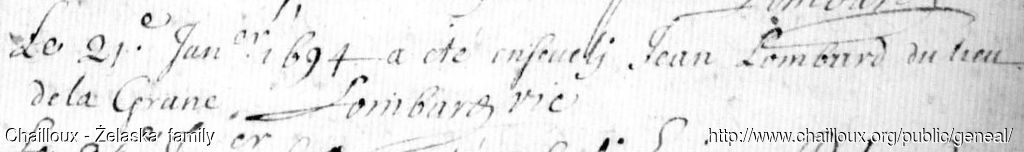 Lombard
Le 21.e Jan.er 1694 a eté enseveli Jean Lombard du lieu
de la Grane. Lombard vic
Chailloux - Żelaska family http://www.chailloux.org/public/geneal/